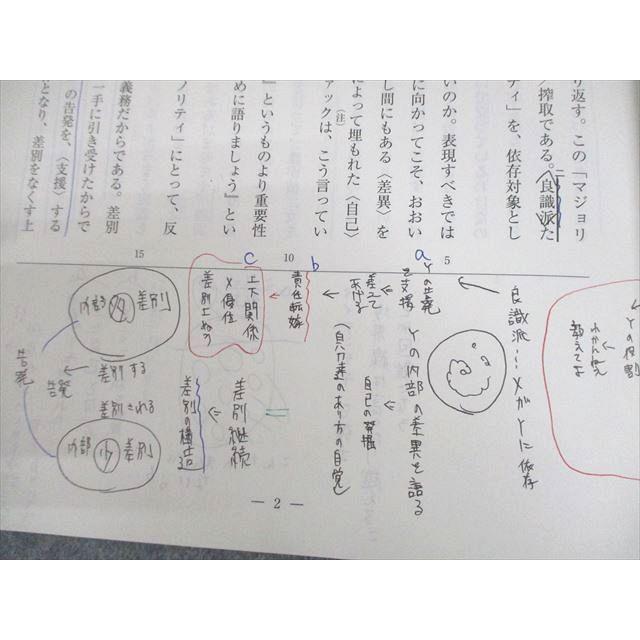 り返す。この「マジョリ
搾取である。〈良識派た
ティ」を、依存対象とし
いのか。表現すべきでは
に向かってこそ、おおい
し間にもある〈差異〉を
によって埋もれた〈自己〉
(注)
ァックは、こう言ってい
』というものより重要性
めに語りましょう」とい
ノリティ」にとって、反
義務だからである。差別
一手に引き受けたからで
の告発を、〈支援〉する
となり、差別をなくす上
5
10
15
Yの役割
わかんない
教えてよ
良識派…XがYに依存
a
Yの告発
を支援
Yの内部の差異を語る
差立て
あげる
自己の発掘
(自分達のあり方の自覚)
b
責任転嫁
c
上下関係
X優位
差別継続
差別の構造
内部
差別
差別する
告発
差別される
内部
差別
告発
— 2 —